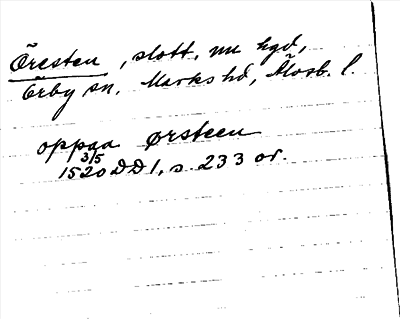 Öresten, slott, nu hgd,
Örby sn. Marks hd, Älvsb. l.
oppaa ørsteen
3/5
1520 DD 1, s 233 or.